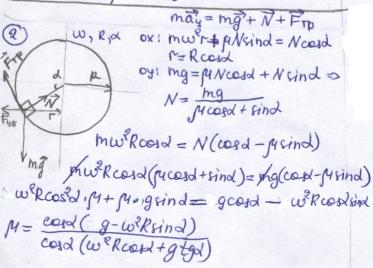 ma⃗ц = mg⃗ + N⃗ + F⃗тр
② ω, R, α
ox: mω²r + μN sinα = N cosα
r = R cosα
oy: mg = μN cosα + N sinα ⇒
N = mg / (μcosα + sinα)
F⃗тр
α R
N⃗ r
mg⃗
mω²R cosα = N(cosα − μsinα)
mω²R cosα(μcosα + sinα) = mg(cosα − μsinα)
ω²R cos²α · μ + μ · g sinα = g cosα − ω²R cosα sinα
μ = cosα(g − ω²R sinα) / cosα(ω²R cosα + g tgα)